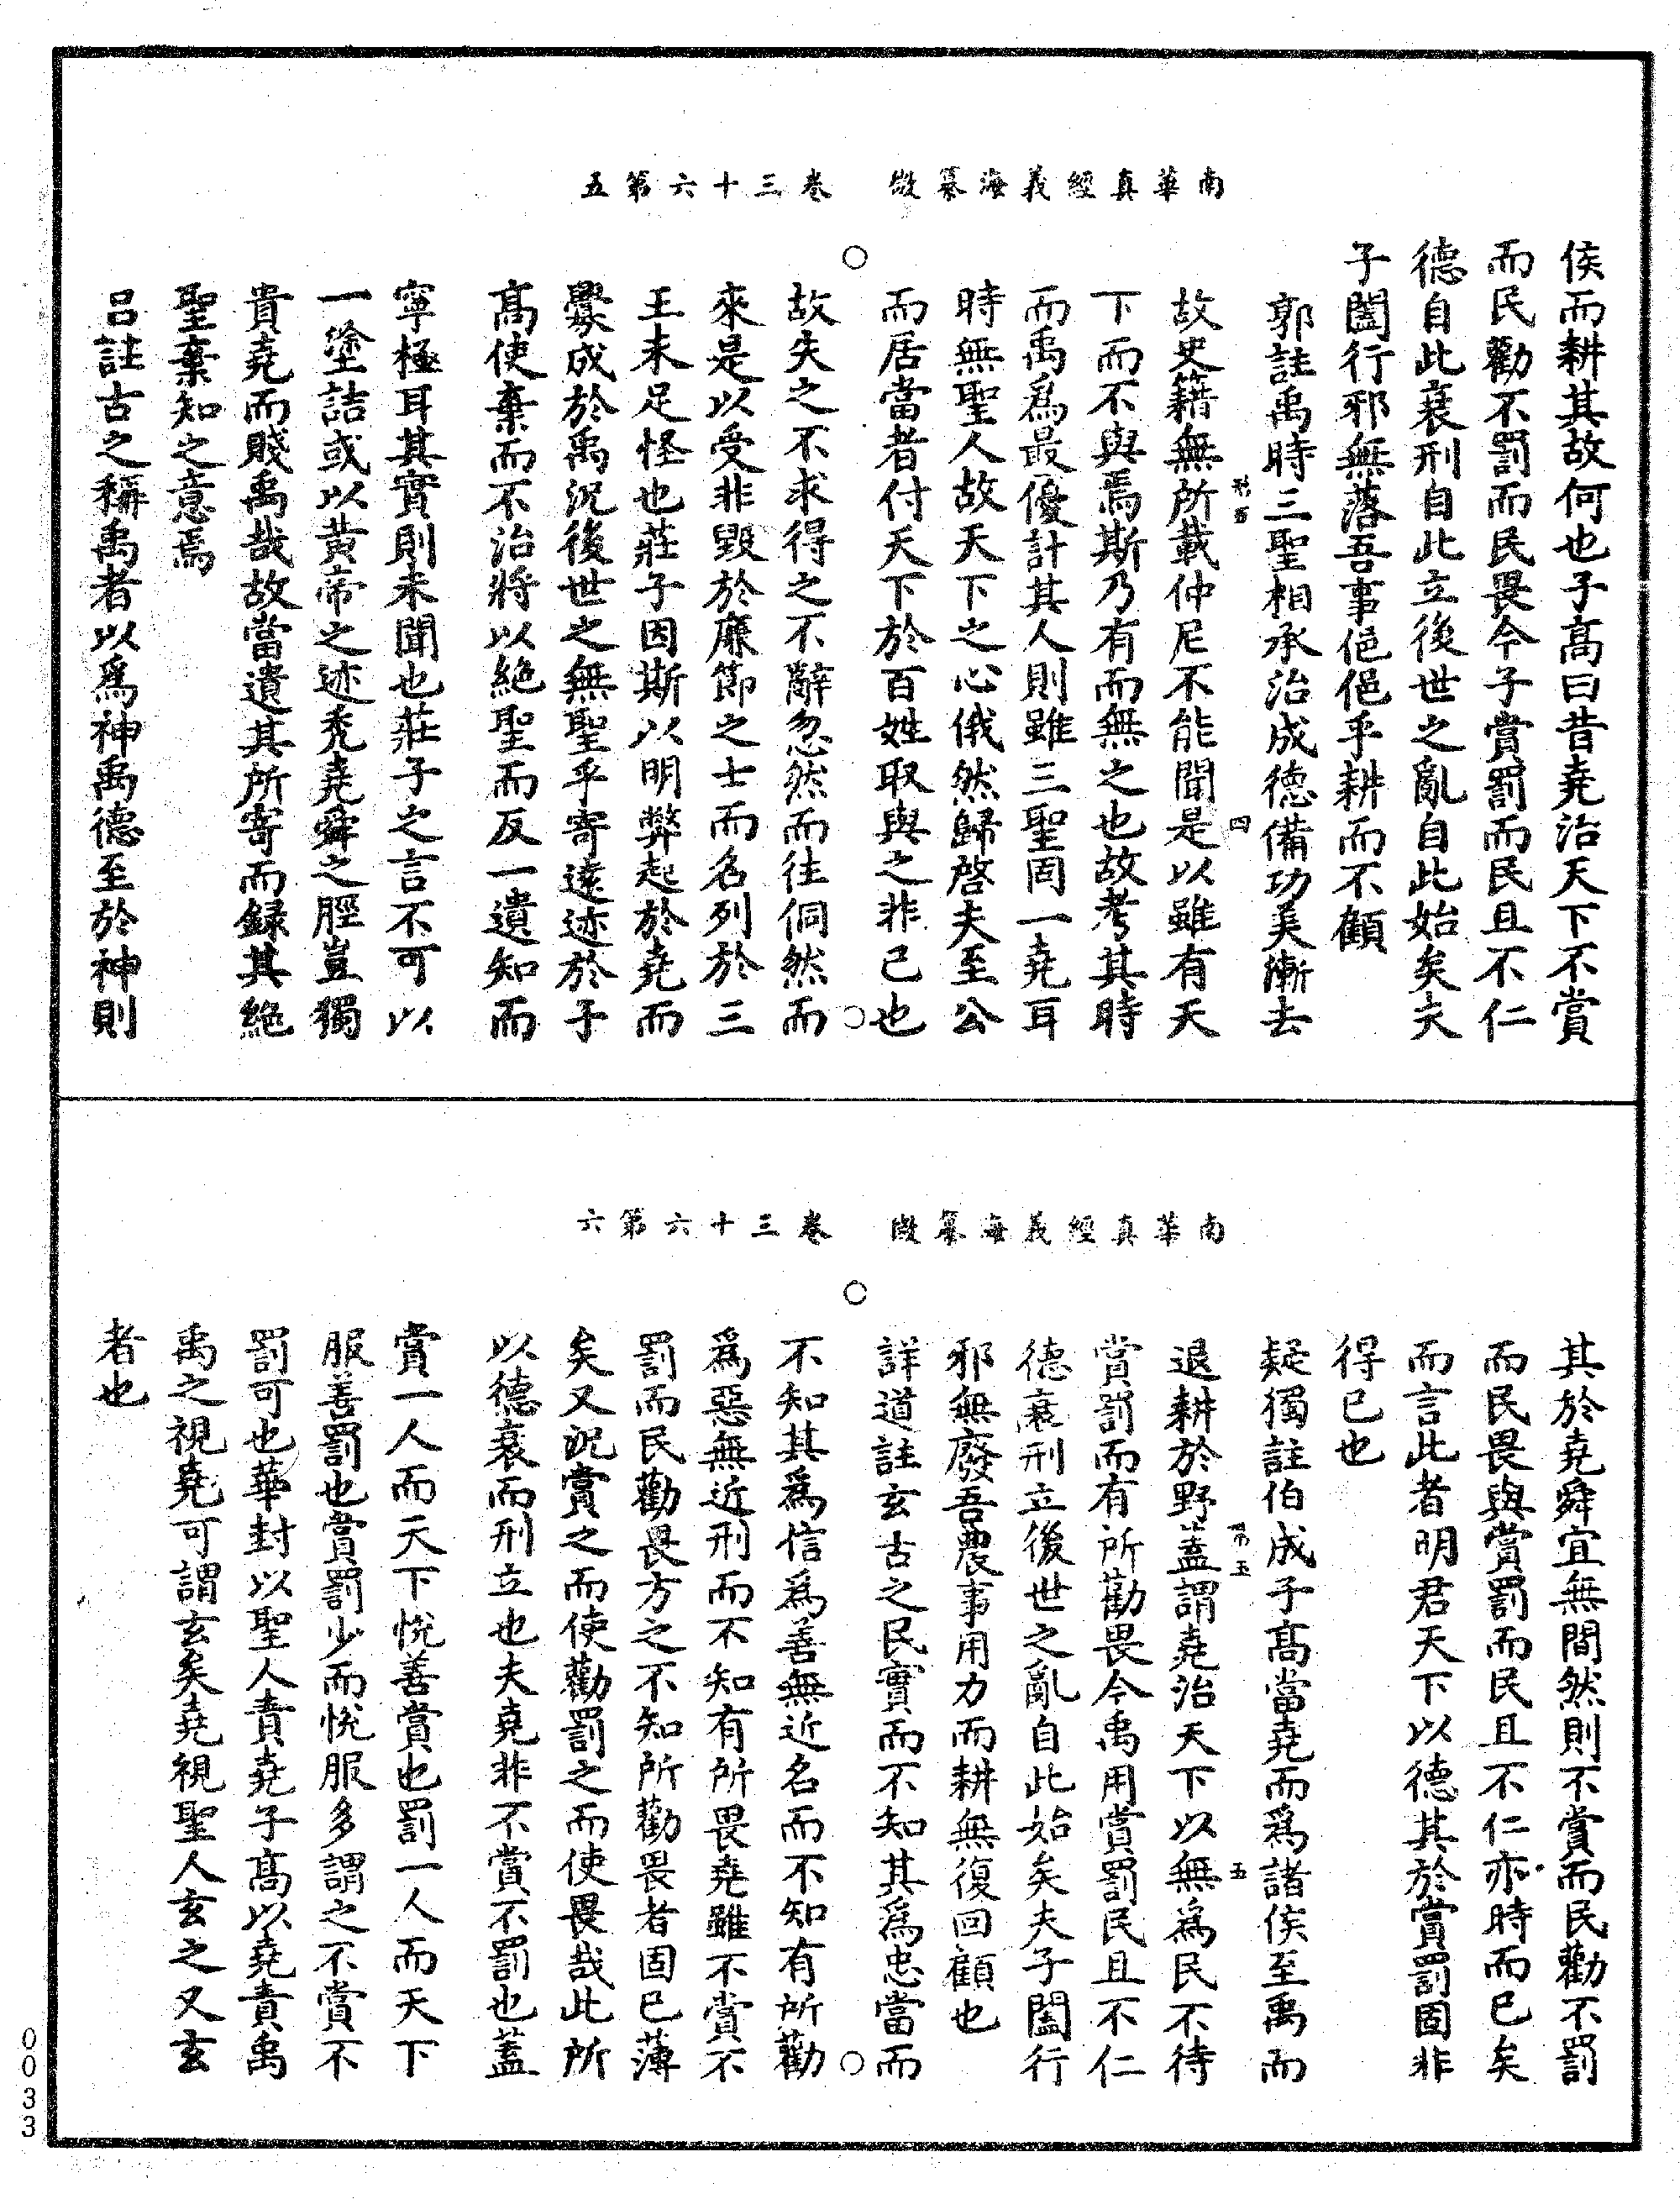 南華真經義海纂微　卷三十六第五
侯而耕其故何也子高曰昔堯治天下不賞
而民勸不罰而民畏今子賞罰而民且不仁
德自此衰刑自此立後世之亂自此始矣夫
子闔行邪無落吾事俋俋乎耕而不顧
郭註禹時三聖相承治成德備功美漸去
故史籍無所載仲尼不能聞是以雖有天
下而不與焉斯乃有而無之也故考其時
而禹爲最優計其人則雖三聖固一堯耳
時無聖人故天下之心俄然歸啓夫至公
而居當者付天下於百姓取與之非己也
故失之不求得之不辭忽然而往侗然而
來是以受非毀於廉節之士而名列於三
王未足怪也莊子因斯以明弊起於堯而
釁成於禹況後世之無聖乎寄遠迹於子
高使棄而不治將以絕聖而反一遺知而
寧極耳其實則未聞也莊子之言不可以
一塗詰或以黃帝之迹禿堯舜之脛豈獨
貴堯而賤禹哉故當遺其所寄而録其絕
聖棄知之意焉
吕註古之稱禹者以爲神禹德至於神則
四
南華真經義海纂微　卷三十六第六
其於堯舜宜無間然則不賞而民勸不罰
而民畏與賞罰而民且不仁亦時而已矣
而言此者明君天下以德其於賞罰固非
得已也
疑獨註伯成子高當堯而爲諸侯至禹而
退耕於野蓋謂堯治天下以無爲民不待
賞罰而有所勸畏今禹用賞罰民且不仁
德衰刑立後世之亂自此始矣夫子闔行
邪無廢吾農事用力而耕無復回顧也
詳道註玄古之民實而不知其爲忠當而
不知其爲信爲善無近名而不知有所勸
爲惡無近刑而不知有所畏堯雖不賞不
罰而民勸畏方之不知所勸畏者固已薄
矣又況賞之而使勸罰之而使畏哉此所
以德衰而刑立也夫堯非不賞不罰也蓋
賞一人而天下悅善賞也罰一人而天下
服善罰也賞罰少而悅服多謂之不賞不
罰可也華封以聖人責堯子高以堯責禹
禹之視堯可謂玄矣堯視聖人玄之又玄
者也
五
0033